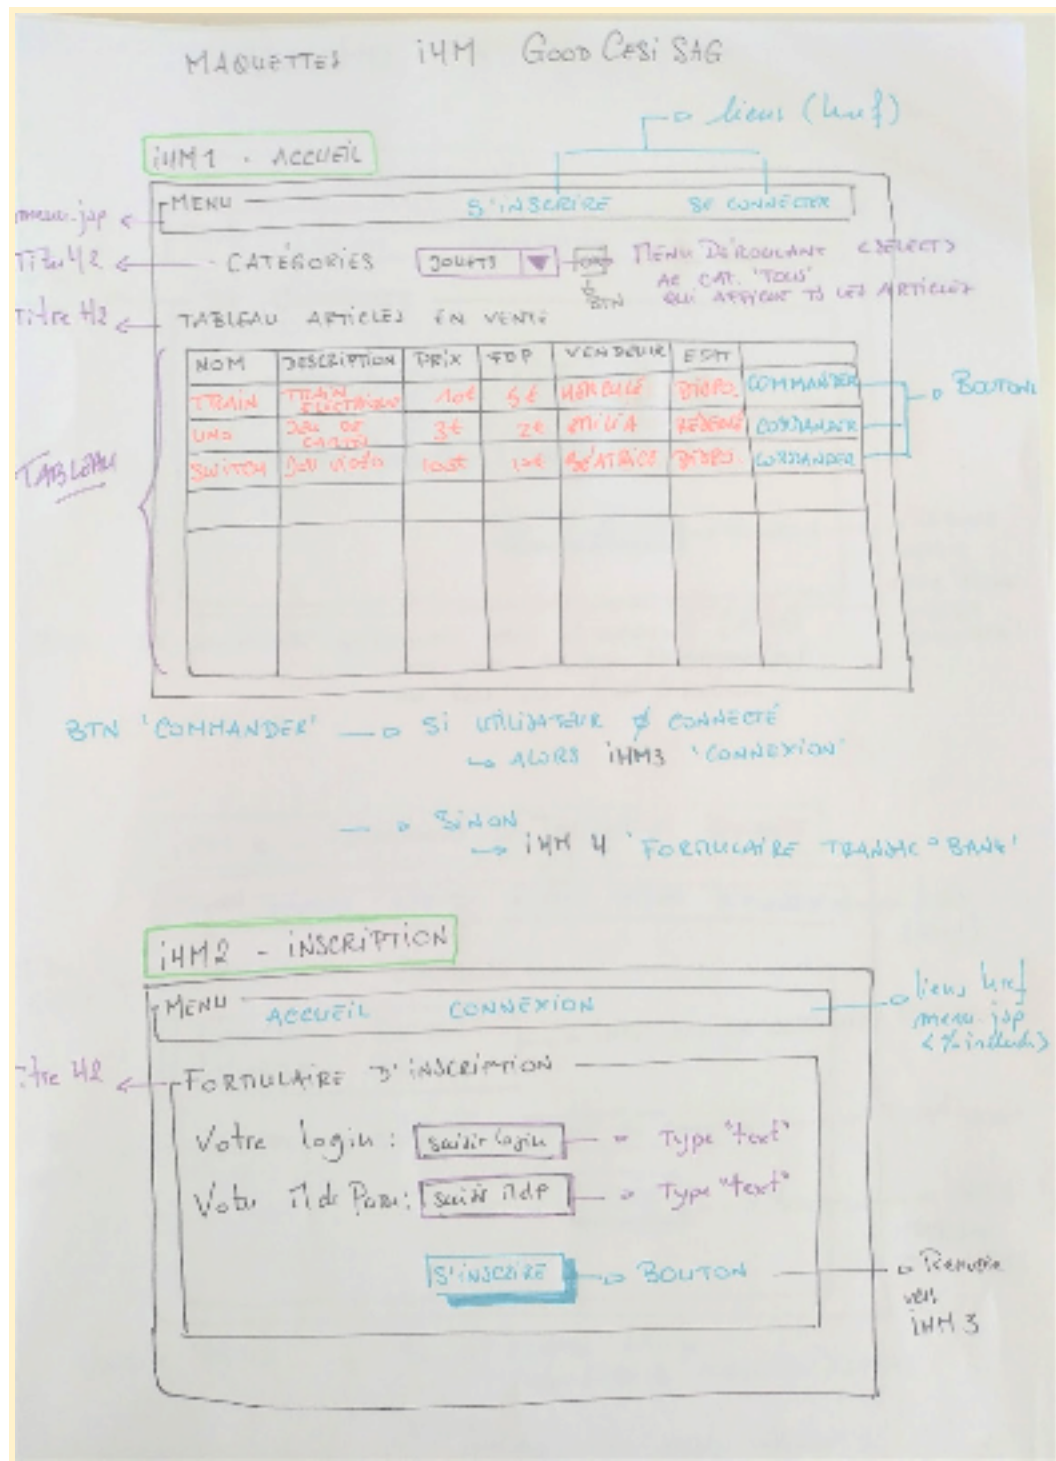 MAQUETTES iHM GOOD CESI SAG
liens (href)
iHM1 - ACCUEIL
MENU S'INSCRIRE SE CONNECTER
menu.jsp
Titre H2 CATÉGORIES JOUETS OK MENU DÉROULANT <SELECT>
AC CAT. 'TOUS'
BTN QUI AFFICHE TS LES ARTICLES
Titre H2 TABLEAU ARTICLES EN VENTE
NOM DESCRIPTION PRIX FDP VENDEUR ETAT
TRAIN TRAIN ELECTRIQUE 10€ 5€ HERCULE DISPO. COMMANDER BOUTONS
UNO JEU DE CARTES 3€ 2€ EMILIA RESERVÉ COMMANDER
SWITCH JEU VIDÉO 100€ 10€ BÉATRICE DISPO. COMMANDER
TABLEAU
BTN 'COMMANDER' SI UTILISATEUR Ø CONNECTÉ
ALORS iHM3 'CONNEXION'
SINON
iHM 4 'FORMULAIRE TRANSAC° BANK'
iHM2 - INSCRIPTION
MENU ACCUEIL CONNEXION liens href
menu.jsp
<%include>
titre H2 FORMULAIRE D'INSCRIPTION
Votre login : saisir login Type "text"
Votre M de Passe : saisir MdP Type "text"
S'INSCRIRE BOUTON Renvoie
vers
iHM 3